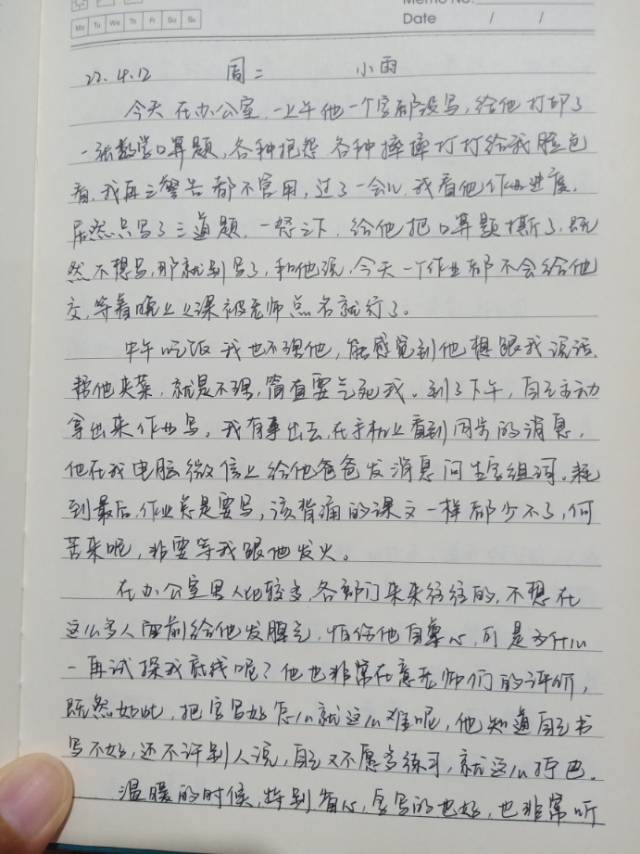 Memo No.
Mo Tu We Th Fr Sa Su
Date / /
22.4.12 周二 小雨
今天在办公室,一上午他一个字都没写,给他打印了
一张数学口算题,各种抱怨各种摔摔打打给我脸色
看,我再三警告都不管用,过了一会儿我看他作业进度,
居然只写了三道题,一怒之下,给他把口算题撕了,既
然不想写,那就别写了,和他说,今天一个作业都不会给他
交,等着晚上上课被老师点名就行了。
中午吃饭我也不理他,能感觉到他想跟我说话,
帮他夹菜,就是不理,简直要气死我。到了下午,自己主动
拿出来作业写,我有事出去,在手机上看到同步的消息,
他在我电脑微信上给他爸爸发消息问生字组词。耗
到最后,作业总是要写,该背诵的课文一样都少不了,何
苦来呢,非要等我跟他发火。
在办公室里人比较多,各部门来来往往的,不想在
这么多人面前给他发脾气,怕伤他自尊心,可是为什么
一再试探我底线呢?他也非常在意老师们的评价,
既然如此,把字写好怎么就这么难呢,他知道自己书
写不好,还不许别人说,自己又不愿多练习,就这么拧巴。
温暖的时候,特别省心,字写的也好,也非常听